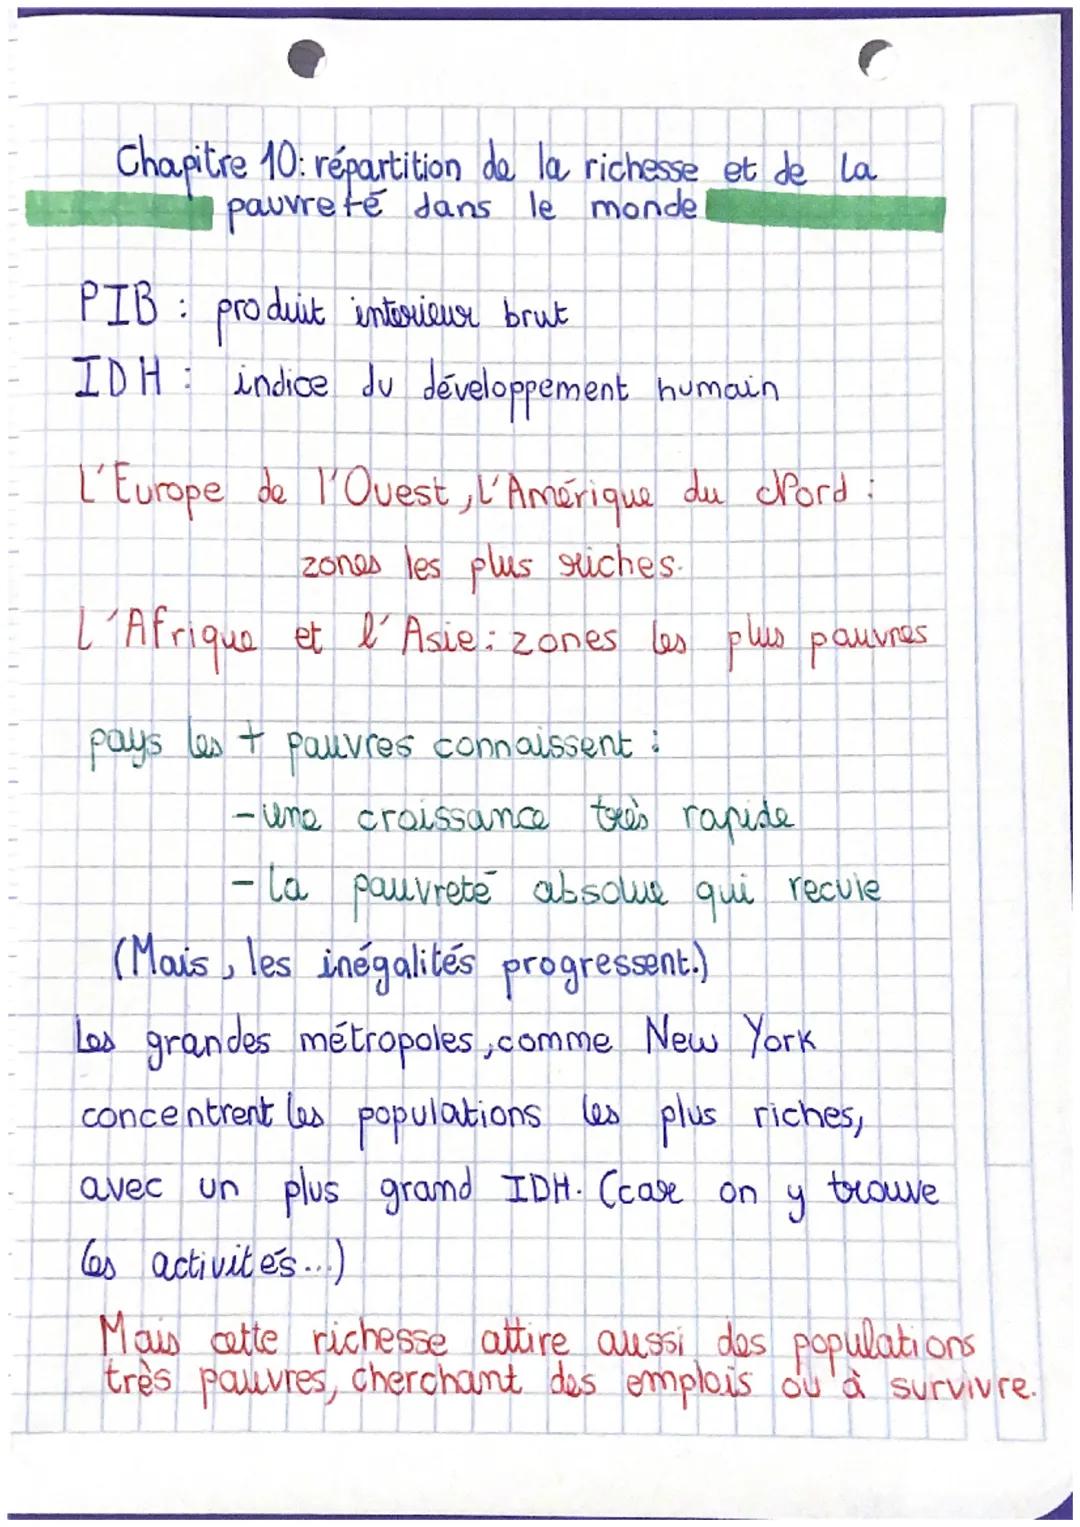 Chapitre 10: répartition de la richesse et de la
pauvreté dans le monde
PIB : produit interieur brut
IDH : indice du développement humain
L'Europe de l'Ouest, L'Amérique du Nord :
zones les plus riches.
L'Afrique et l'Asie : zones les plus pauvres
pays les + pauvres connaissent :
- une croissance très rapide
- la pauvreté absolue qui recule
(Mais, les inégalités progressent.)
Les grandes métropoles, comme New York
concentrent les populations les plus riches,
avec un plus grand IDH. (car on y trouve
les activités...)
Mais cette richesse attire aussi des populations
très pauvres, cherchant des emplois ou à survivre.